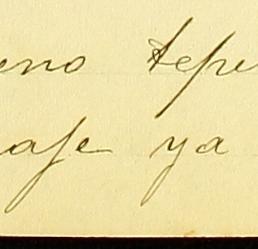 eno tepe
aje ya